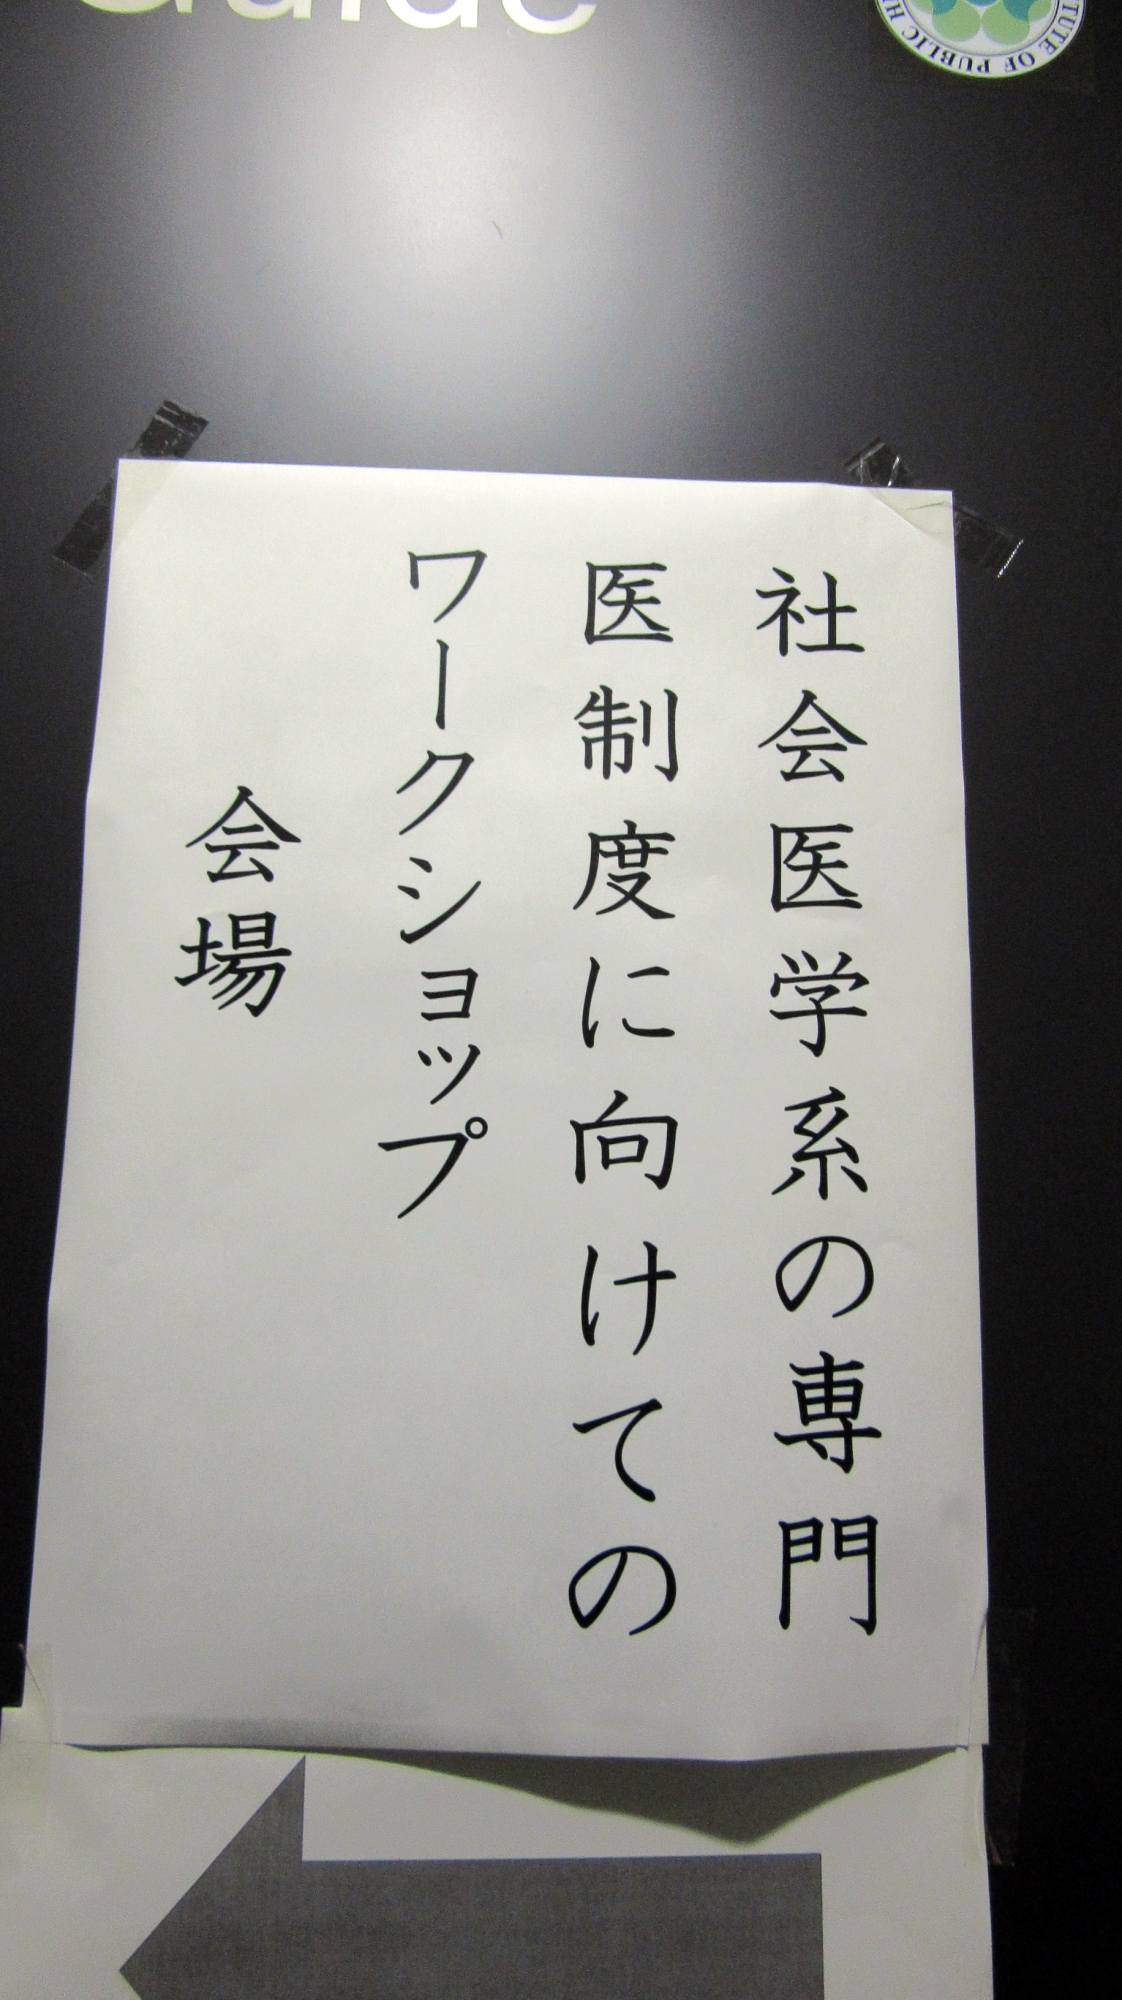 Guide
TUTE OF PUBLIC H
社会医学系の専門
医制度に向けての
ワークショップ
会場